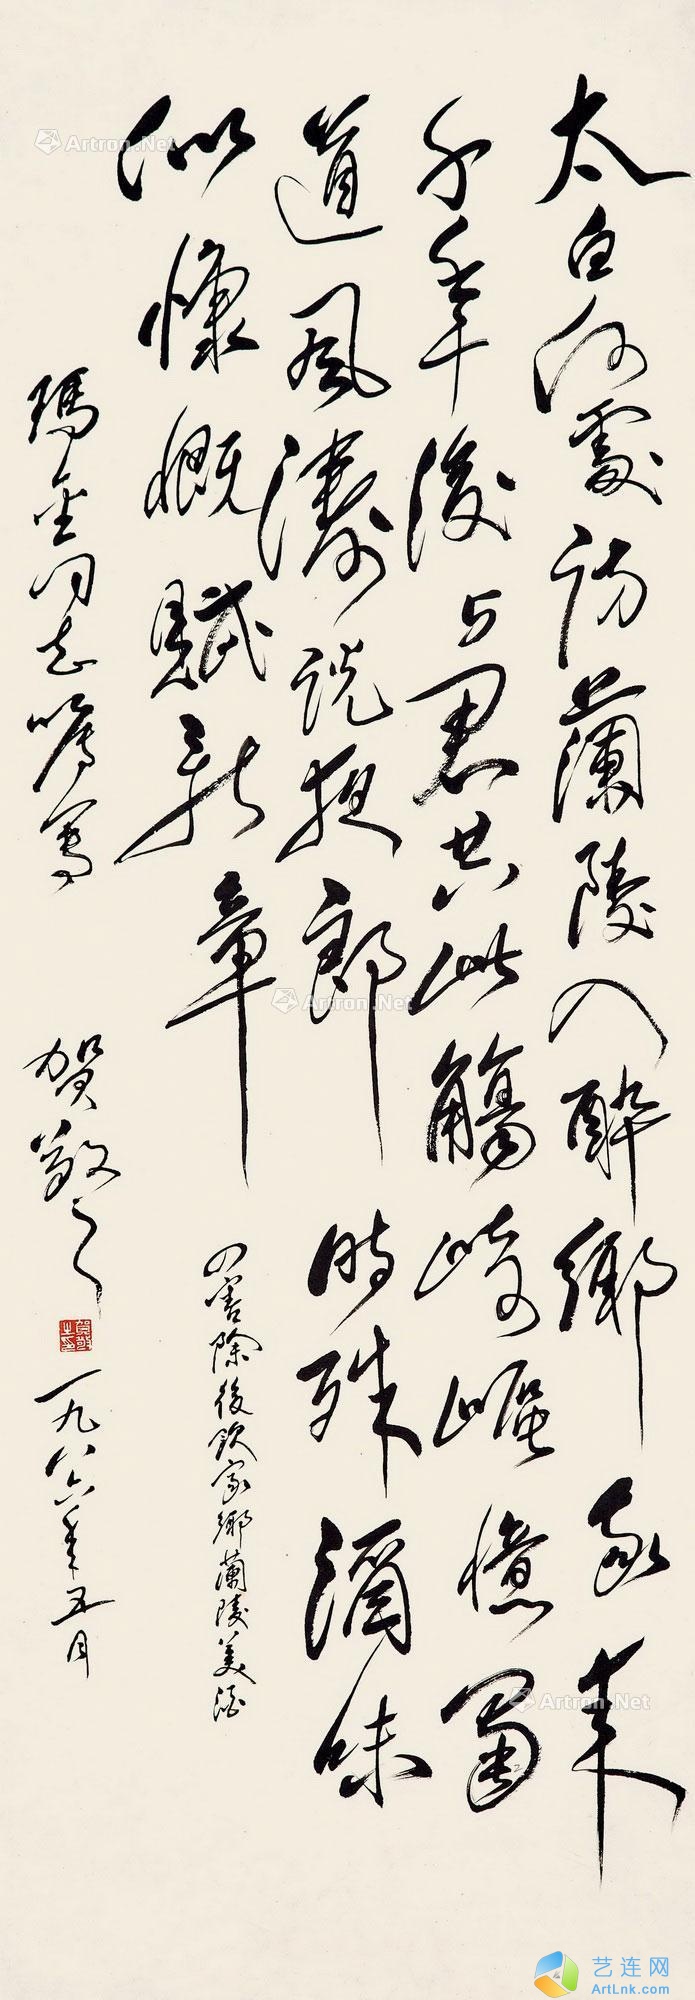 太白何處訪蘭陵入醉鄉我來
千年後与君共此觴崎嶇憶蜀
道風濤説夜郎時殊酒味
似慷慨賦新章
四害除後飲家鄉蘭陵美酒
瑪金同志嘱写
贺敬之
一九八六年五月
Artron.Net
Artron.Net
Artron.Net
艺连网
ArtLnk.com